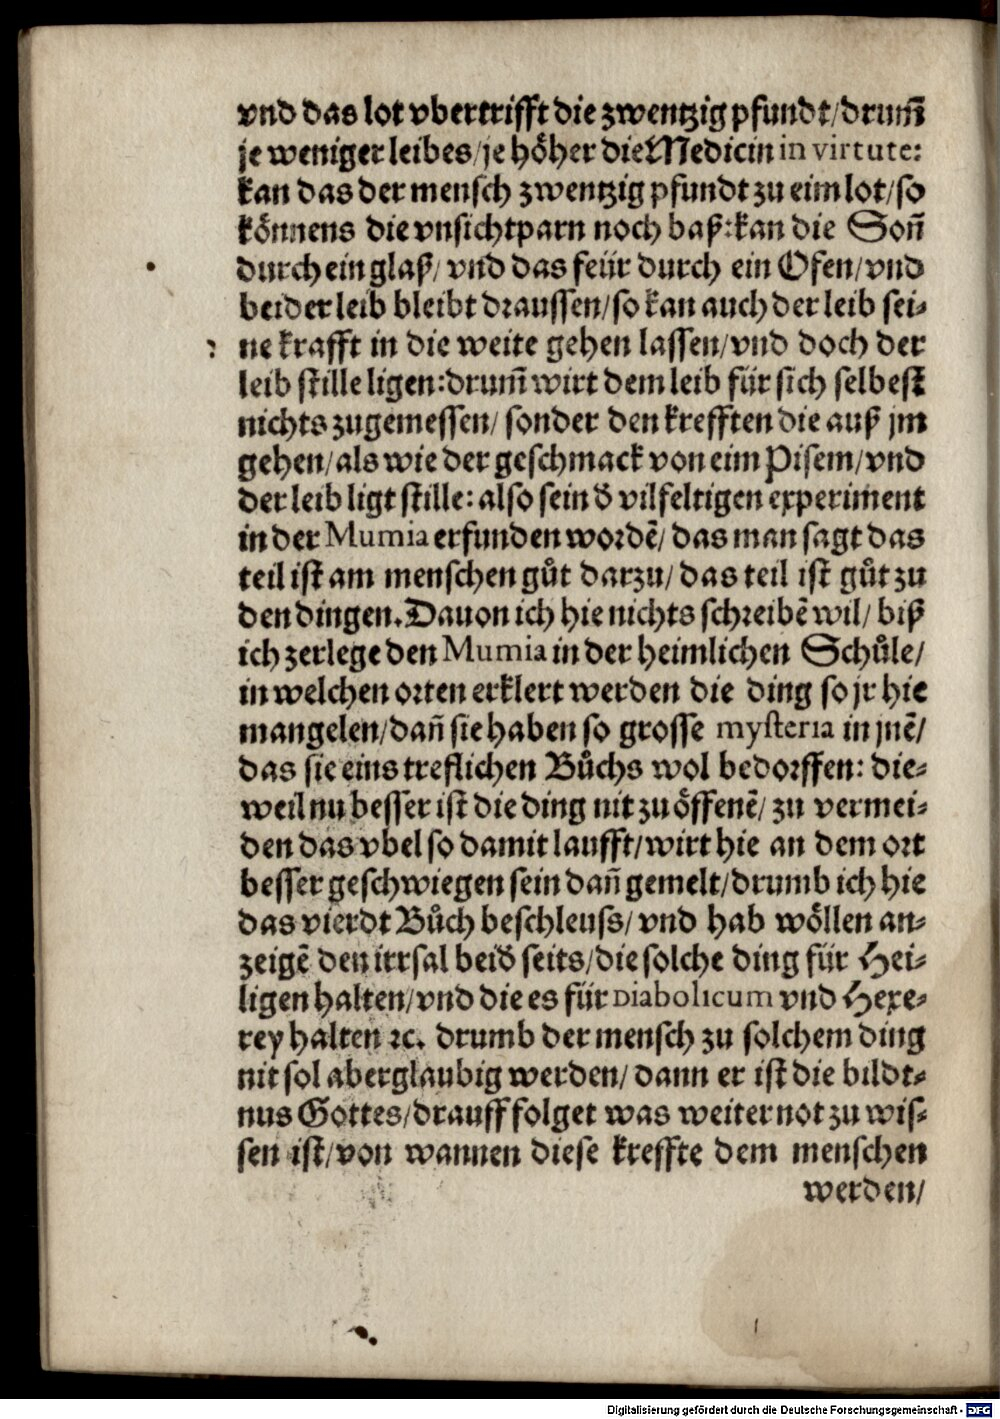 vnd das lot vbertrifft die zwentzig pfundt/drum̄
je weniger leibes/je hoͤher die Medicin in virtute:
kan das der mensch zwentzig pfundt zu eim lot/so
koͤnnens die vnsichtparn noch baß:kan die Son̄
durch ein glaß/ vnd das feür durch ein Ofen/vnd
beider leib bleibt draussen/so kan auch der leib sei-
ne krafft in die weite gehen lassen/vnd doch der
leib stille ligen:drum̄ wirt dem leib für sich selbest
nichts zugemessen/ sonder den krefften die auß jm
gehen/als wie der geschmack von eim Pisem/vnd
der leib ligt stille: also sein d̕ vilfeltigen experiment
in der Mumia erfunden wordē/ das man sagt das
teil ist am menschen guͦt darzu/ das teil ist guͦt zu
den dingen. Dauon ich hie nichts schreibē wil/ biß
ich zerlege den Mumia in der heimlichen Schuͦle/
in welchen orten erklert werden die ding so jr hie
mangelen/dan̄ sie haben so grosse mysteria in jnē/
das sie eins treflichen Buͦchs wol bedorffen: die-
weil nu besser ist die ding nit zu oͤffenē/ zu vermei-
den das vbel so damit laufft/wirt hie an dem ort
besser geschwiegen sein dan̄ gemelt/drumb ich hie
das vierdt Buͦch beschleuss/ vnd hab woͤllen an-
zeigē den irrsal beid̕ seits/die solche ding für Hei-
ligen halten/vnd die es für Diabolicum vnd Hexe-
rey halten ꝛc. drumb der mensch zu solchem ding
nit sol aberglaubig werden/ dann er ist die bildt-
nus Gottes/drauff folget was weiter not zu wis-
sen ist/von wannen diese kreffte dem menschen
werden/
Digitalisierung gefördert durch die Deutsche Forschungsgemeinschaft - DFG